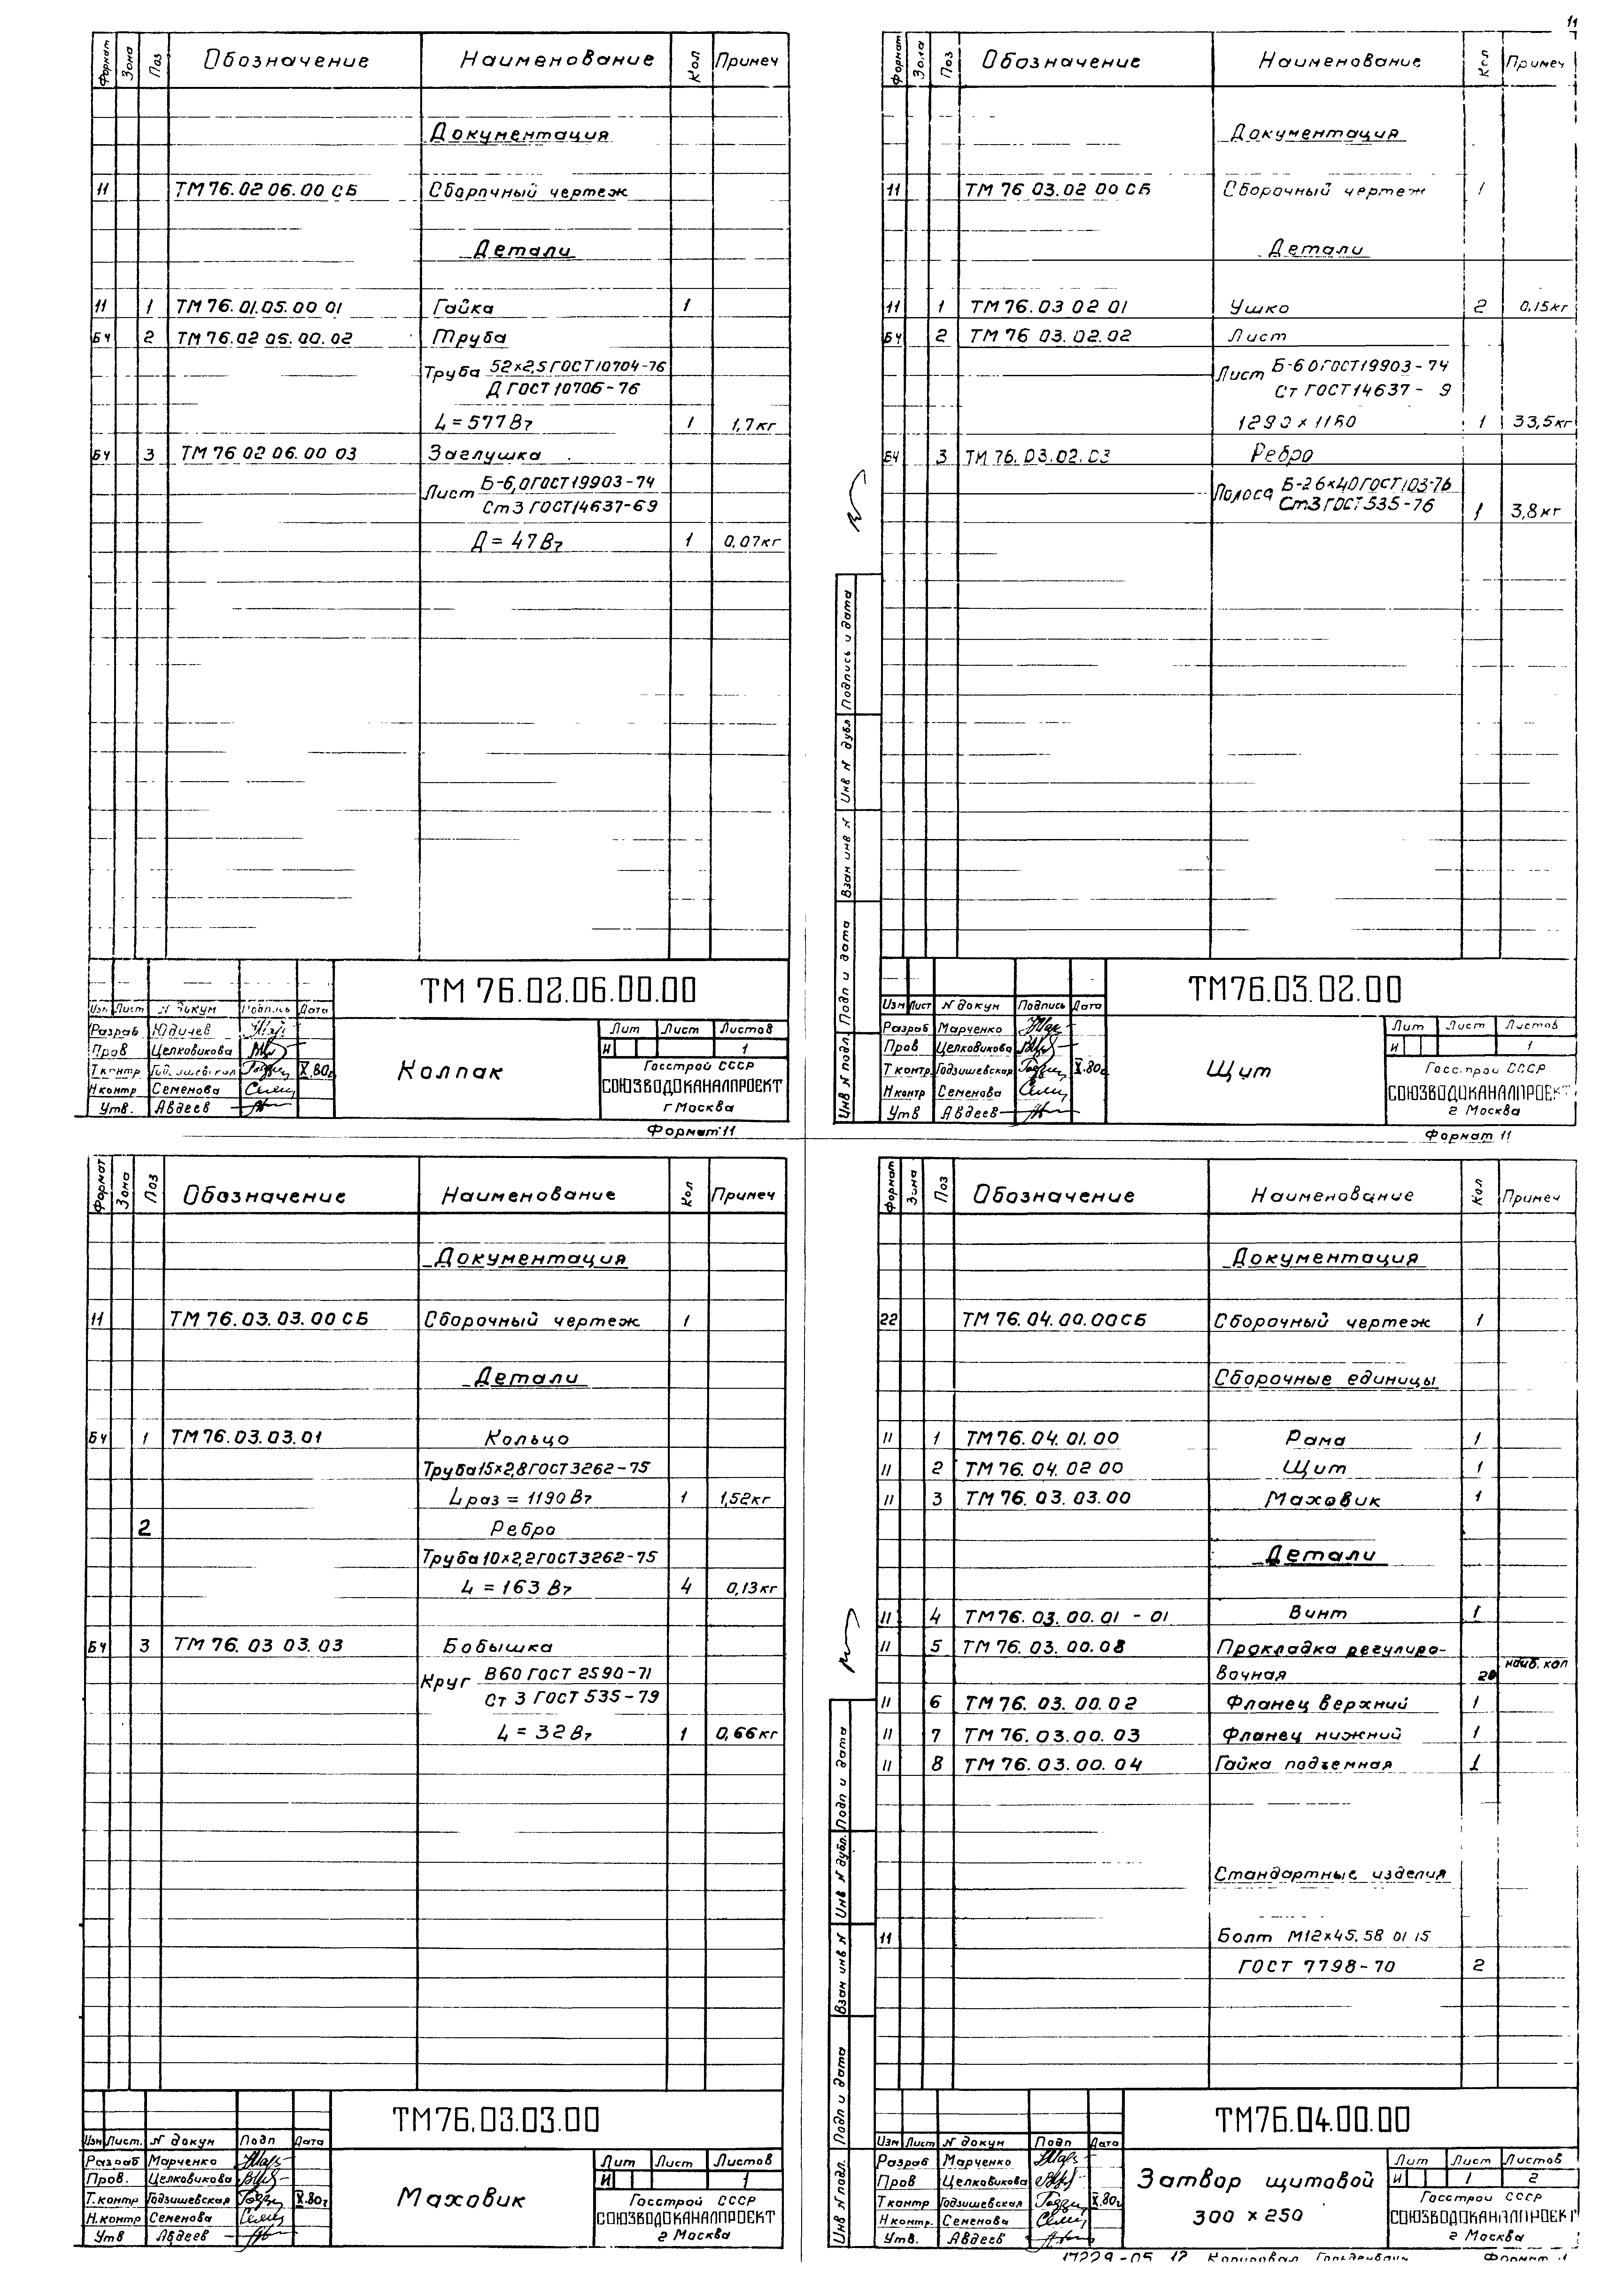 11
Формат Зона Поз Обозначение Наименование Кол Примеч
Документация
11 ТМ 76.02 06.00 СБ Сборочный чертеж
Детали
11 1 ТМ 76.01.05.00 01 Гайка 1
БЧ 2 ТМ 76.02 05.00.02 Труба
Труба 52×2,5 ГОСТ 10704-76
Д ГОСТ 10706-76
L = 577 В7 1 1,7кг
БЧ 3 ТМ 76 02 06.00 03 Заглушка
Лист Б-6,0 ГОСТ 19903-74
Ст3 ГОСТ 14637-69
Д = 47 В7 1 0,07кг
ТМ 76.02.06.00.00
Изм Лист N докум Подпись Дата
Разраб Юдичев
Пров Целковикова
Т контр X.80г
Н контр Семенова
Утв. Авдеев
Колпак
Лит Лист Листов
И 1
Госстрой СССР
СОЮЗВОДОКАНАЛПРОЕКТ
г Москва
Формат 11
Формат Зона Поз Обозначение Наименование Кол Примеч
Документация
11 ТМ 76 03.02 00 СБ Сборочный чертеж 1
Детали
11 1 ТМ 76.03 02 01 Ушко 2 0,15кг
БЧ 2 ТМ 76 03.02.02 Лист
Лист Б-6 0 ГОСТ 19903-74
Ст ГОСТ 14637- 9
1290 × 1160 1 33,5кг
БЧ 3 ТМ 76.03.02.03 Ребро
Полоса Б-2 6×40 ГОСТ 103-76
Ст3 ГОСТ 535-76 1 3,8кг
Подпись и дата
Инв N дубл
Взам инв N
Подп и дата
Инв N подл
ТМ76.03.02.00
Изм Лист N докум Подпись Дата
Разраб Марченко
Пров Целковикова
Т контр Годзишевская X.80г
Н контр Семенова
Утв Авдеев
Щит
Лит Лист Листов
И 1
Госстрой СССР
СОЮЗВОДОКАНАЛПРОЕКТ
г Москва
Формат 11
Формат Зона Поз Обозначение Наименование Кол Примеч
Документация
11 ТМ 76.03.03.00 СБ Сборочный чертеж 1
Детали
БЧ 1 ТМ 76.03.03.01 Кольцо
Труба 15×2,8 ГОСТ 3262-75
L раз = 1190 В7 1 1,52кг
2 Ребро
Труба 10×2,2 ГОСТ 3262-75
L = 163 В7 4 0,13кг
БЧ 3 ТМ 76.03 03.03 Бобышка
Круг В60 ГОСТ 2590-71
Ст 3 ГОСТ 535-79
L = 32 В7 1 0,66кг
ТМ76.03.03.00
Изм Лист. N докум Подп Дата
Разраб Марченко
Пров. Целковикова
Т.контр Годзишевская X.80г
Н.контр Семенова
Утв Авдеев
Маховик
Лит Лист Листов
И 1
Госстрой СССР
СОЮЗВОДОКАНАЛПРОЕКТ
г Москва
Формат Зона Поз Обозначение Наименование Кол Примеч
Документация
22 ТМ 76.04.00.00 СБ Сборочный чертеж 1
Сборочные единицы
11 1 ТМ 76.04.01.00 Рама 1
11 2 ТМ 76.04.02 00 Щит 1
11 3 ТМ 76.03.03.00 Маховик 1
Детали
11 4 ТМ 76.03.00.01 - 01 Винт 1
11 5 ТМ 76.03.00.08 Прокладка регулиро-
вочная 20 наиб. кол
11 6 ТМ 76.03.00.02 Фланец верхний 1
11 7 ТМ 76.03.00.03 Фланец нижний 1
11 8 ТМ 76.03.00.04 Гайка подъемная 1
Стандартные изделия
11 Болт М12×45.58 01 15
ГОСТ 7798-70 2
Подп и дата
Инв N дубл.
Взам инв N
Подп и дата
Инв N подл.
ТМ76.04.00.00
Изм Лист N докум Подп Дата
Разраб Марченко
Пров Целковикова
Т контр Годзишевская X.80г
Н контр. Семенова
Утв. Авдеев
Затвор щитовой
300 × 250
Лит Лист Листов
И 1 2
Госстрой СССР
СОЮЗВОДОКАНАЛПРОЕКТ
г Москва
17229-05 12 Копировал Формат